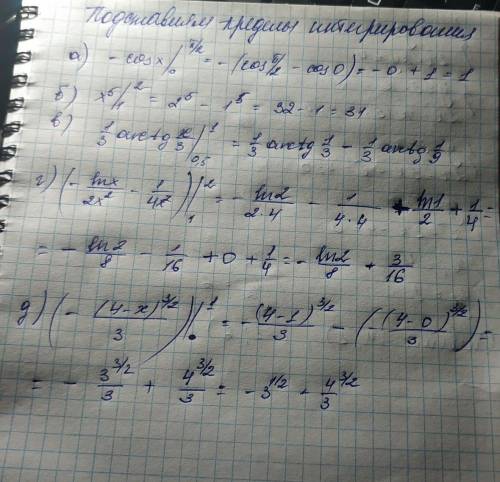 Подставляем пределы интегрирования
а) - cosx |₀^π/2 = -(cos π/2 - cos0) = -0 + 1 = 1
б) x⁵|₁² = 2⁵ - 1⁵ = 32 - 1 = 31
в) 1/3 arctg x/3 |₀,₅¹ = 1/3 arctg 1/3 - 1/3 arctg 1/9
г) (- lnx/2x² - 1/4x²)|₁² = - ln2/2·4 - 1/4·4 + ln1/2 + 1/4 =
= - ln2/8 - 1/16 + 0 + 1/4 = - ln2/8 + 3/16
д) (- (4-x)^3/2/3)|₀¹ = - (4-1)^3/2/3 - (- (4-0)^3/2/3) =
= - 3^3/2/3 + 4^3/2/3 = - 3^1/2 + 4^3/2/3